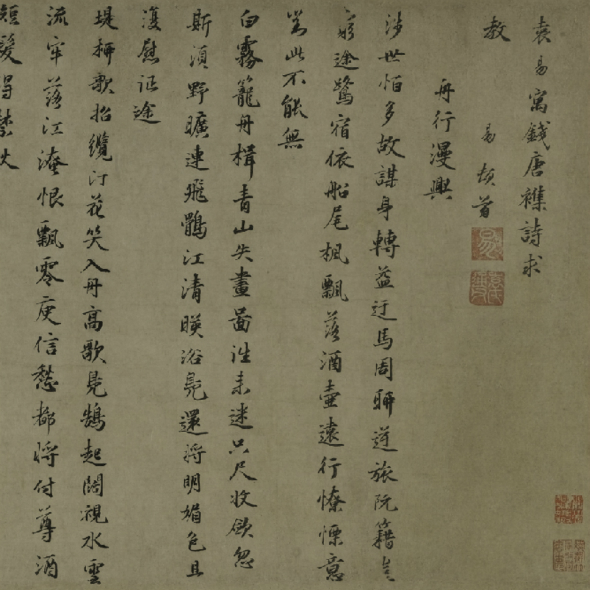 袁易寓錢唐雜詩求
教
易頓首
舟行漫興
涉世怕多故謀身轉益迂馬周聊逆旅阮籍豈
窮途鷺宿依船尾楓飄落酒壺遠行憭慄意
當此不能無
白霧籠舟楫青山失畫啚往來迷只尺收斂忽
斯須野曠連飛鸛江清暎浴鳧還將明媚色且
復慰征途
堤柳歌招纜汀花笑入舟高歌見鵠起闊視水雲
流牢落江淹恨飄零庾信愁都將付尊酒
短髮